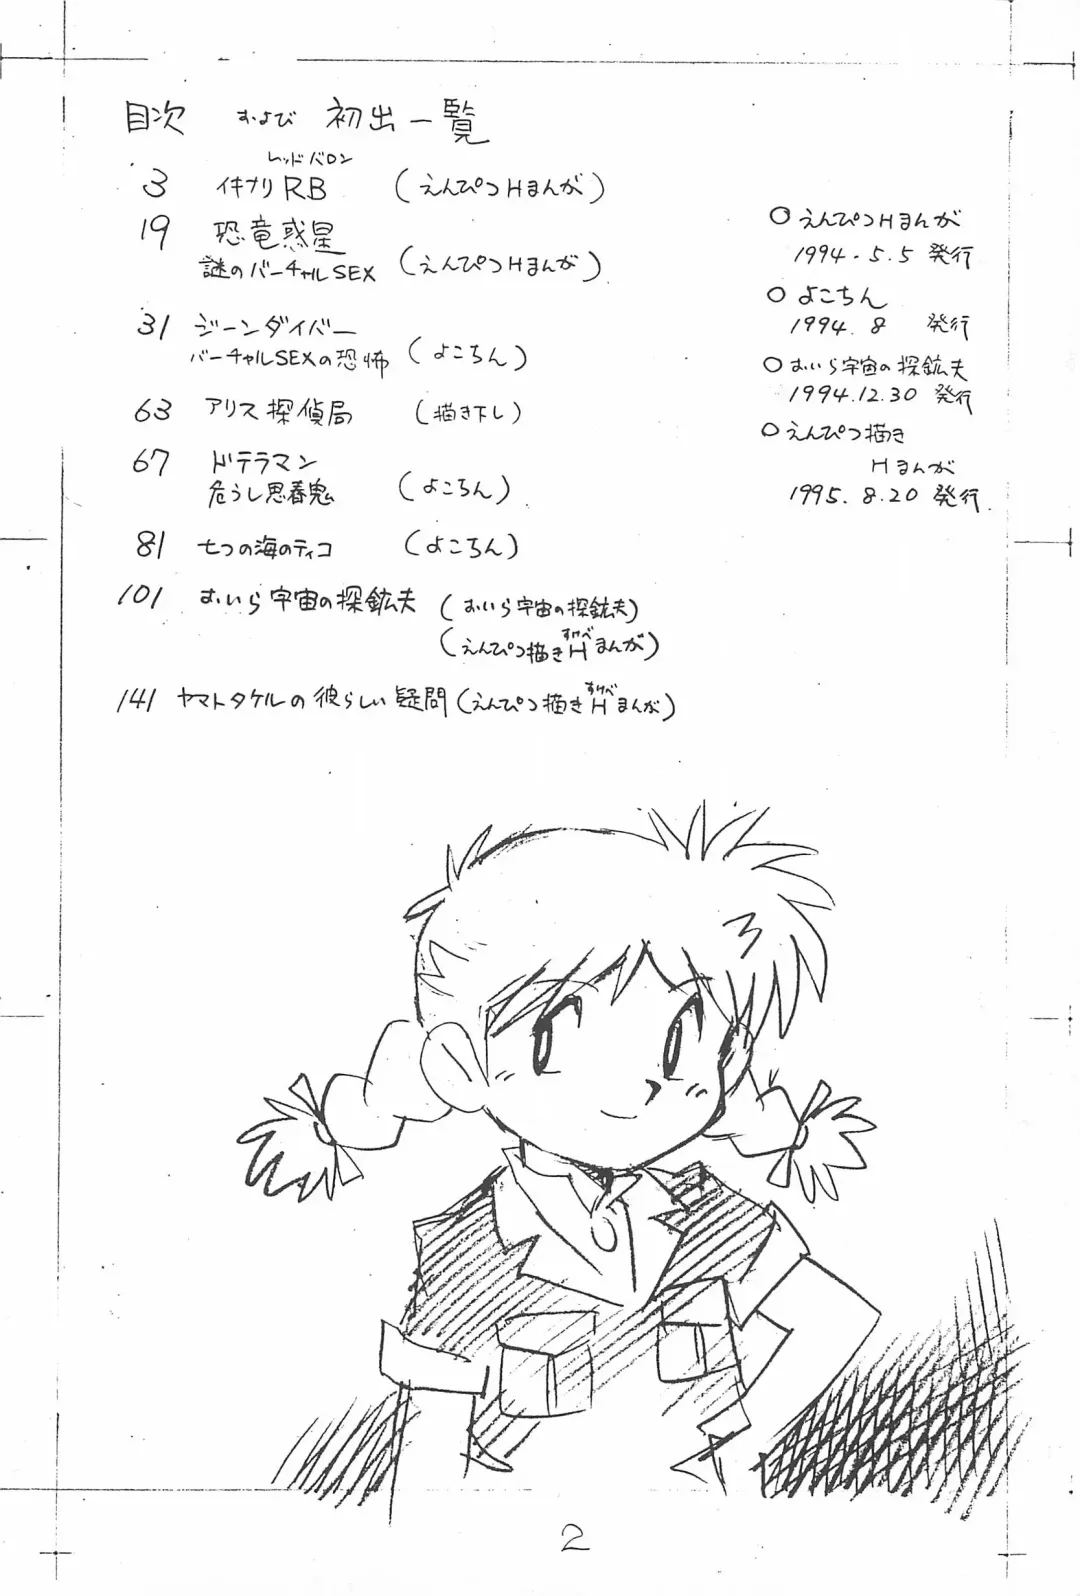 目次 および 初出一覧
レッドバロン
3 イキナリRB (えんぴつHまんが)
19 恐竜惑星
謎のバーチャルSEX (えんぴつHまんが)
31 ジーンダイバー
バーチャルSEXの恐怖 (よこちん)
63 アリス探偵局 (描き下し)
67 ドテラマン
危うし思春鬼 (よこちん)
81 七つの海のティコ (よこちん)
101 おいら宇宙の探鉱夫 (おいら宇宙の探鉱夫)
(えんぴつ描きHまんが)
すけべ
141 ヤマトタケルの彼らしい疑問 (えんぴつ描きHまんが)
すけべ
○えんぴつHまんが
1994.5.5 発行
○よこちん
1994.8 発行
○おいら宇宙の探鉱夫
1994.12.30 発行
○えんぴつ描き
Hまんが
1995.8.20 発行
2